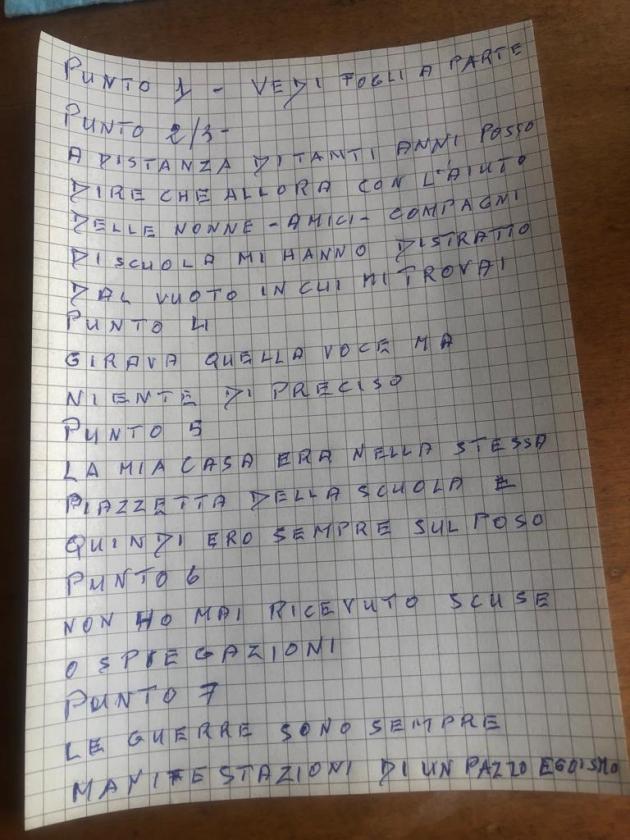 PUNTO 1 - VEDI FOGLI A PARTE
PUNTO 2/3-
A DISTANZA DI TANTI ANNI POSSO
DIRE CHE ALLORA CON L'AIUTO
DELLE NONNE - AMICI - COMPAGNI
DI SCUOLA MI HANNO DISTRATTO
DAL VUOTO IN CUI MI TROVAI
PUNTO 4
GIRAVA QUELLA VOCE MA
NIENTE DI PRECISO
PUNTO 5
LA MIA CASA ERA NELLA STESSA
PIAZZETTA DELLA SCUOLA E
QUINDI ERO SEMPRE SUL POSO
PUNTO 6
NON HO MAI RICEVUTO SCUSE
O SPIEGAZIONI
PUNTO 7
LE GUERRE SONO SEMPRE
MANIFESTAZIONI DI UN PAZZO EGOISMO